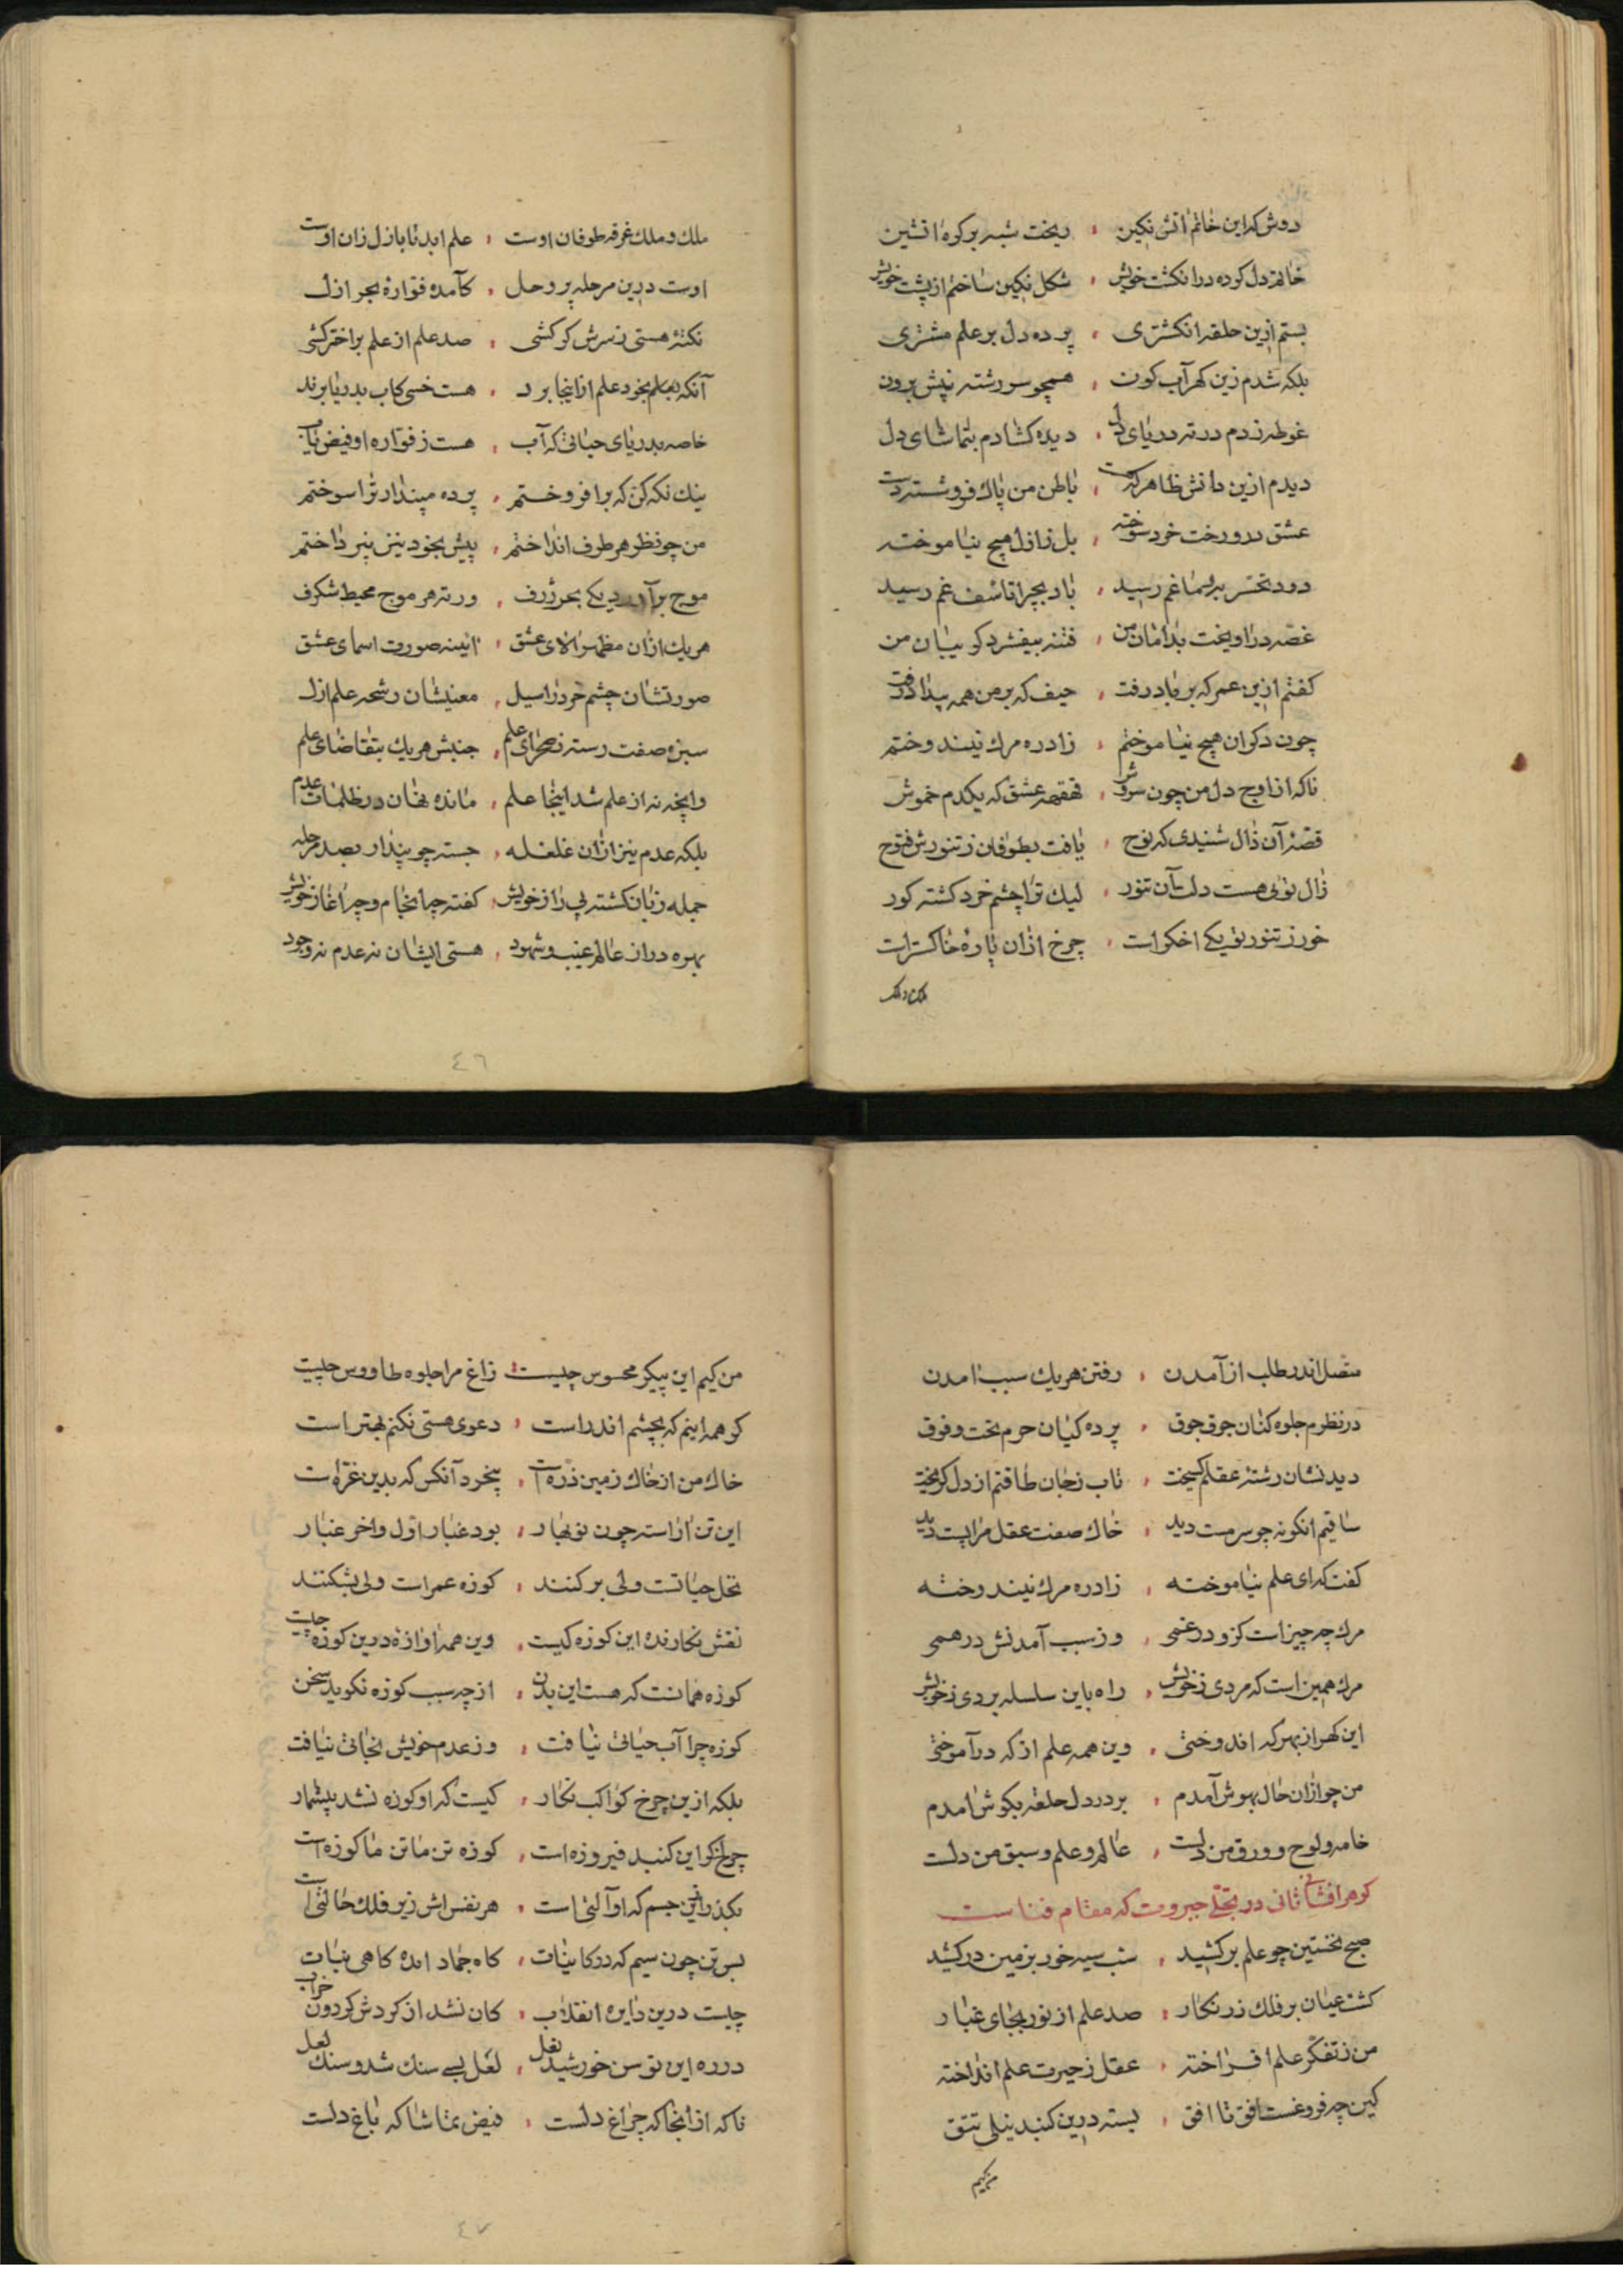 دوش که این خاتم آتش نکین ، ریخت شبه بر کره آتشین
خاتم دل کرده در انکشت خویش ، شکل نکین ساختم از پشت خویش
بستم ازین حلقه انکشتری ، پرده دل بر علم مشتری
بلکه شدم زین کهر آب کون ، همچو سر رشته نپیش برون
غوطه زدم در ته دریای دل ، دیده کشادم بتماشای دل
دیدم ازین دانش ظاهر که هست ، باطن من پاک فرو شسته دست
عشق درو رخت خرد سوخته ، بل ز ازل هیچ نیاموخته
دود تحسر بر سما غم رسید ، باد بچرا تاسف غم رسید
غصه در آویخت بدامان من ، فتنه بیفشرد کریبان من
کفتم ازین عمر که بر باد رفت ، حیف که بر من همه بیداد رفت
چون دکران هیچ نیاموختم ، زاد ره مرک نیندوختم
ناکه از اوج دل من چون سروش ، قهقهه عشق که یکدم خموش
قصه آن زال شنیدی که نوح ، یافت بطوفان ز تنورش فتوح
زال توئی هست دلت آن تنور ، لیک ترا چشم خرد کشته کور
خور ز تنور تو یکی اخکر است ، چرخ ازان پاره خاکستر است
ملک و ملک
ملک و ملک غرقه طوفان اوست ، علم ابد تا بازل زان اوست
اوست درین مرحله پر وحل ، کآمده فواره بحر ازل
نکته هستی ز سرش کر کشی ، صد علم از علم بر اختر کشی
آنکه بعلم بخود علم از اینجا برد ، هست خسی کاب بدریا برد
خاصه بدریای حیاتی که آب ، هست ز فواره او فیض یاب
نیک نکه کن که بر افروختم ، پرده پندار ترا سوختم
من چو نظر هر طرف انداختم ، پیش بخود نیز نپرداختم
موج بر آورد یکی بحر ژرف ، در ته هر موج محیط شکرف
هر یک ازان مظهر الای عشق ، آینه صورت اسمای عشق
صورتشان چشم خرد را سبل ، معنیشان رشحه علم ازل
سبزه صفت رسته ز صحرای علم ، جنبش هر یک بتقاضای علم
وانچه نه از علم شد اینجا علم ، مانده نهان در ظلمات عدم
بلکه عدم نیز ازان غلغله ، جسته چو پندار بصد مرحله
جمله زبان کشته پی راز خویش ، کفته چه انجام و چه آغاز خویش
بهره ور از عالم غیب و شهود ، هستی ایشان نه عدم نه وجود
٤٦
متصل اندر طلب از آمدن ، رفتن هر یک سبب آمدن
در نظرم جلوه کنان جوق جوق ، پرده کیان حرم تحت و فوق
دیدنشان رشته عقلم کسیخت ، تاب ز جان طاقتم از دل کریخت
ساقیم انکونه چو سرمست دید ، خاک صفت عقل مرا پست دید
کفت که ای علم نیاموخته ، زاد ره مرک نیندوخته
مرک چه چیز است کزو در غمی ، وز سبب آمدنش در همی
مرک همین است که مردی ز خویش ، راه باین سلسله بردی ز خویش
این کهر از بهر که اندوختی ، وین همه علم از که در آموختی
من چو ازان حال بهوش آمدم ، بر در دل حلقه بکوش آمدم
خامه و لوح و ورق من دلست ، عالم و علم و سبق من دلست
کوهر افشانی ثانی در تجلی جبروت که مقام فناست
صبح نخستین چو علم بر کشید ، شب سیه خور بزمین در کشید
کشت عیان بر فلک زرنکار ، صد علم از نور بجای غبار
من ز تفکر علم افراخته ، عقل ز حیرت علم انداخته
کین چه فروغست افق تا افق ، بسته درین کنبد نیلی تتق
من کیم
من کیم این پیکر محسوس چیست ، زاغ مرا جلوه طاووس چیست
کر همه اینم که بچشم اندر است ، دعوی هستی نکنم بهتر است
خاک من از خاک زمین ذره است ، بیخرد آنکس که بدین غره است
این تن آراسته چون نوبهار ، بود غبار اول و آخر غبار
نخل حیاتست ولی بر کنند ، کوزه عمر است ولی بشکنند
نقش نکارنده این کوزه کیست ، وین همه آوازه درین کوزه چیست
کوزه همانست که هست این بدن ، از چه سبب کوزه نکوید سخن
کوزه چرا آب حیاتی نیافت ، وز عدم خویش نجاتی نیافت
بلکه ازین چرخ کواکب نکار ، کیست که او کوزه نشد بیشمار
چرخ کر این کنبد فیروزه است ، کوزه تن ما تن ما کوزه است
بکذر ازین جسم که او آلتی است ، هر نفس اش زیر فلک حالتی است
بس تن چون سیم که در کاینات ، کاه جماد آمده کاهی نبات
چیست درین دایره انقلاب ، کان نشد از کردش کردون خراب
در ره این توسن خورشید نعل ، لعل بسی سنک شد و سنک لعل
ناکه از انجا که چراغ دلست ، فیض تماشا که باغ دلست
٤٧